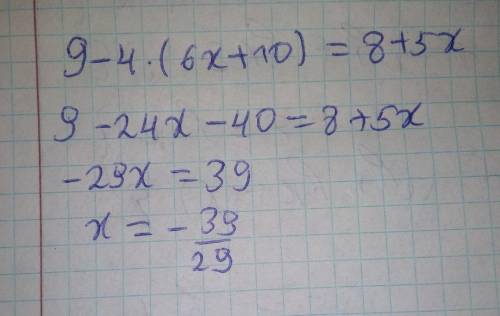 9-4·(6x+10)=8+5x
9-24x-40=8+5x
-29x=39
x=-39/29